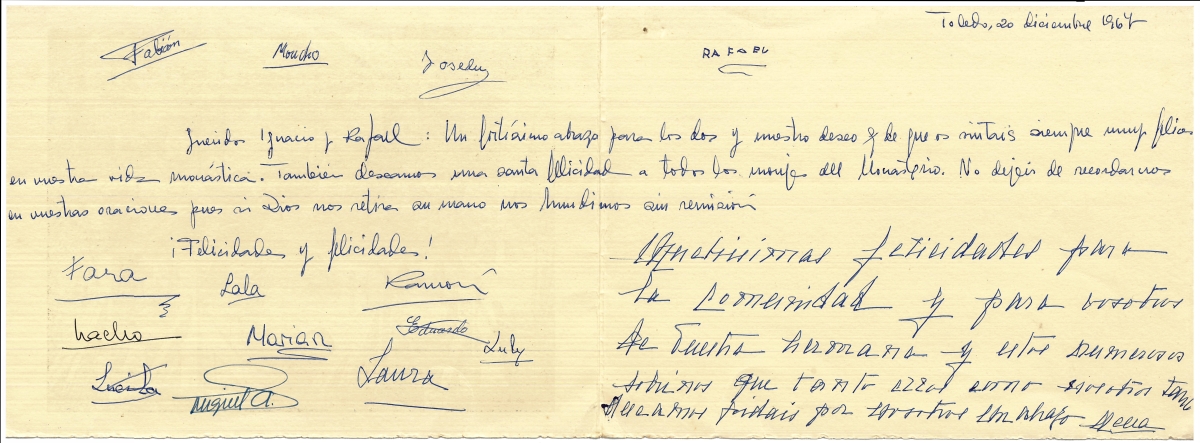 Toledo, 20 diciembre 1967
Fabián Moncho Josedu RAFAEL
Queridos Ignacio y Rafael: Un fortísimo abrazo para los dos y nuestro deseo de que os sintais siempre muy felices
en vuestra vida monástica. También deseamos una santa felicidad a todos los monjes del Monasterio. No dejéis de recordarnos
en vuestras oraciones pues si Dios nos retira su mano nos hundimos sin remisión
¡Felicidades y felicidades!
Fara Lala Ramón
Nacho Marian Eduardo Luly
Lucita Miguel A. Laura
Muchísimas felicidades para
la Comunidad y para vosotros
de vuestra hermana y estos numerosos
sobrinos que tanto ellos como nosotros
pidais por nosotros un abrazo